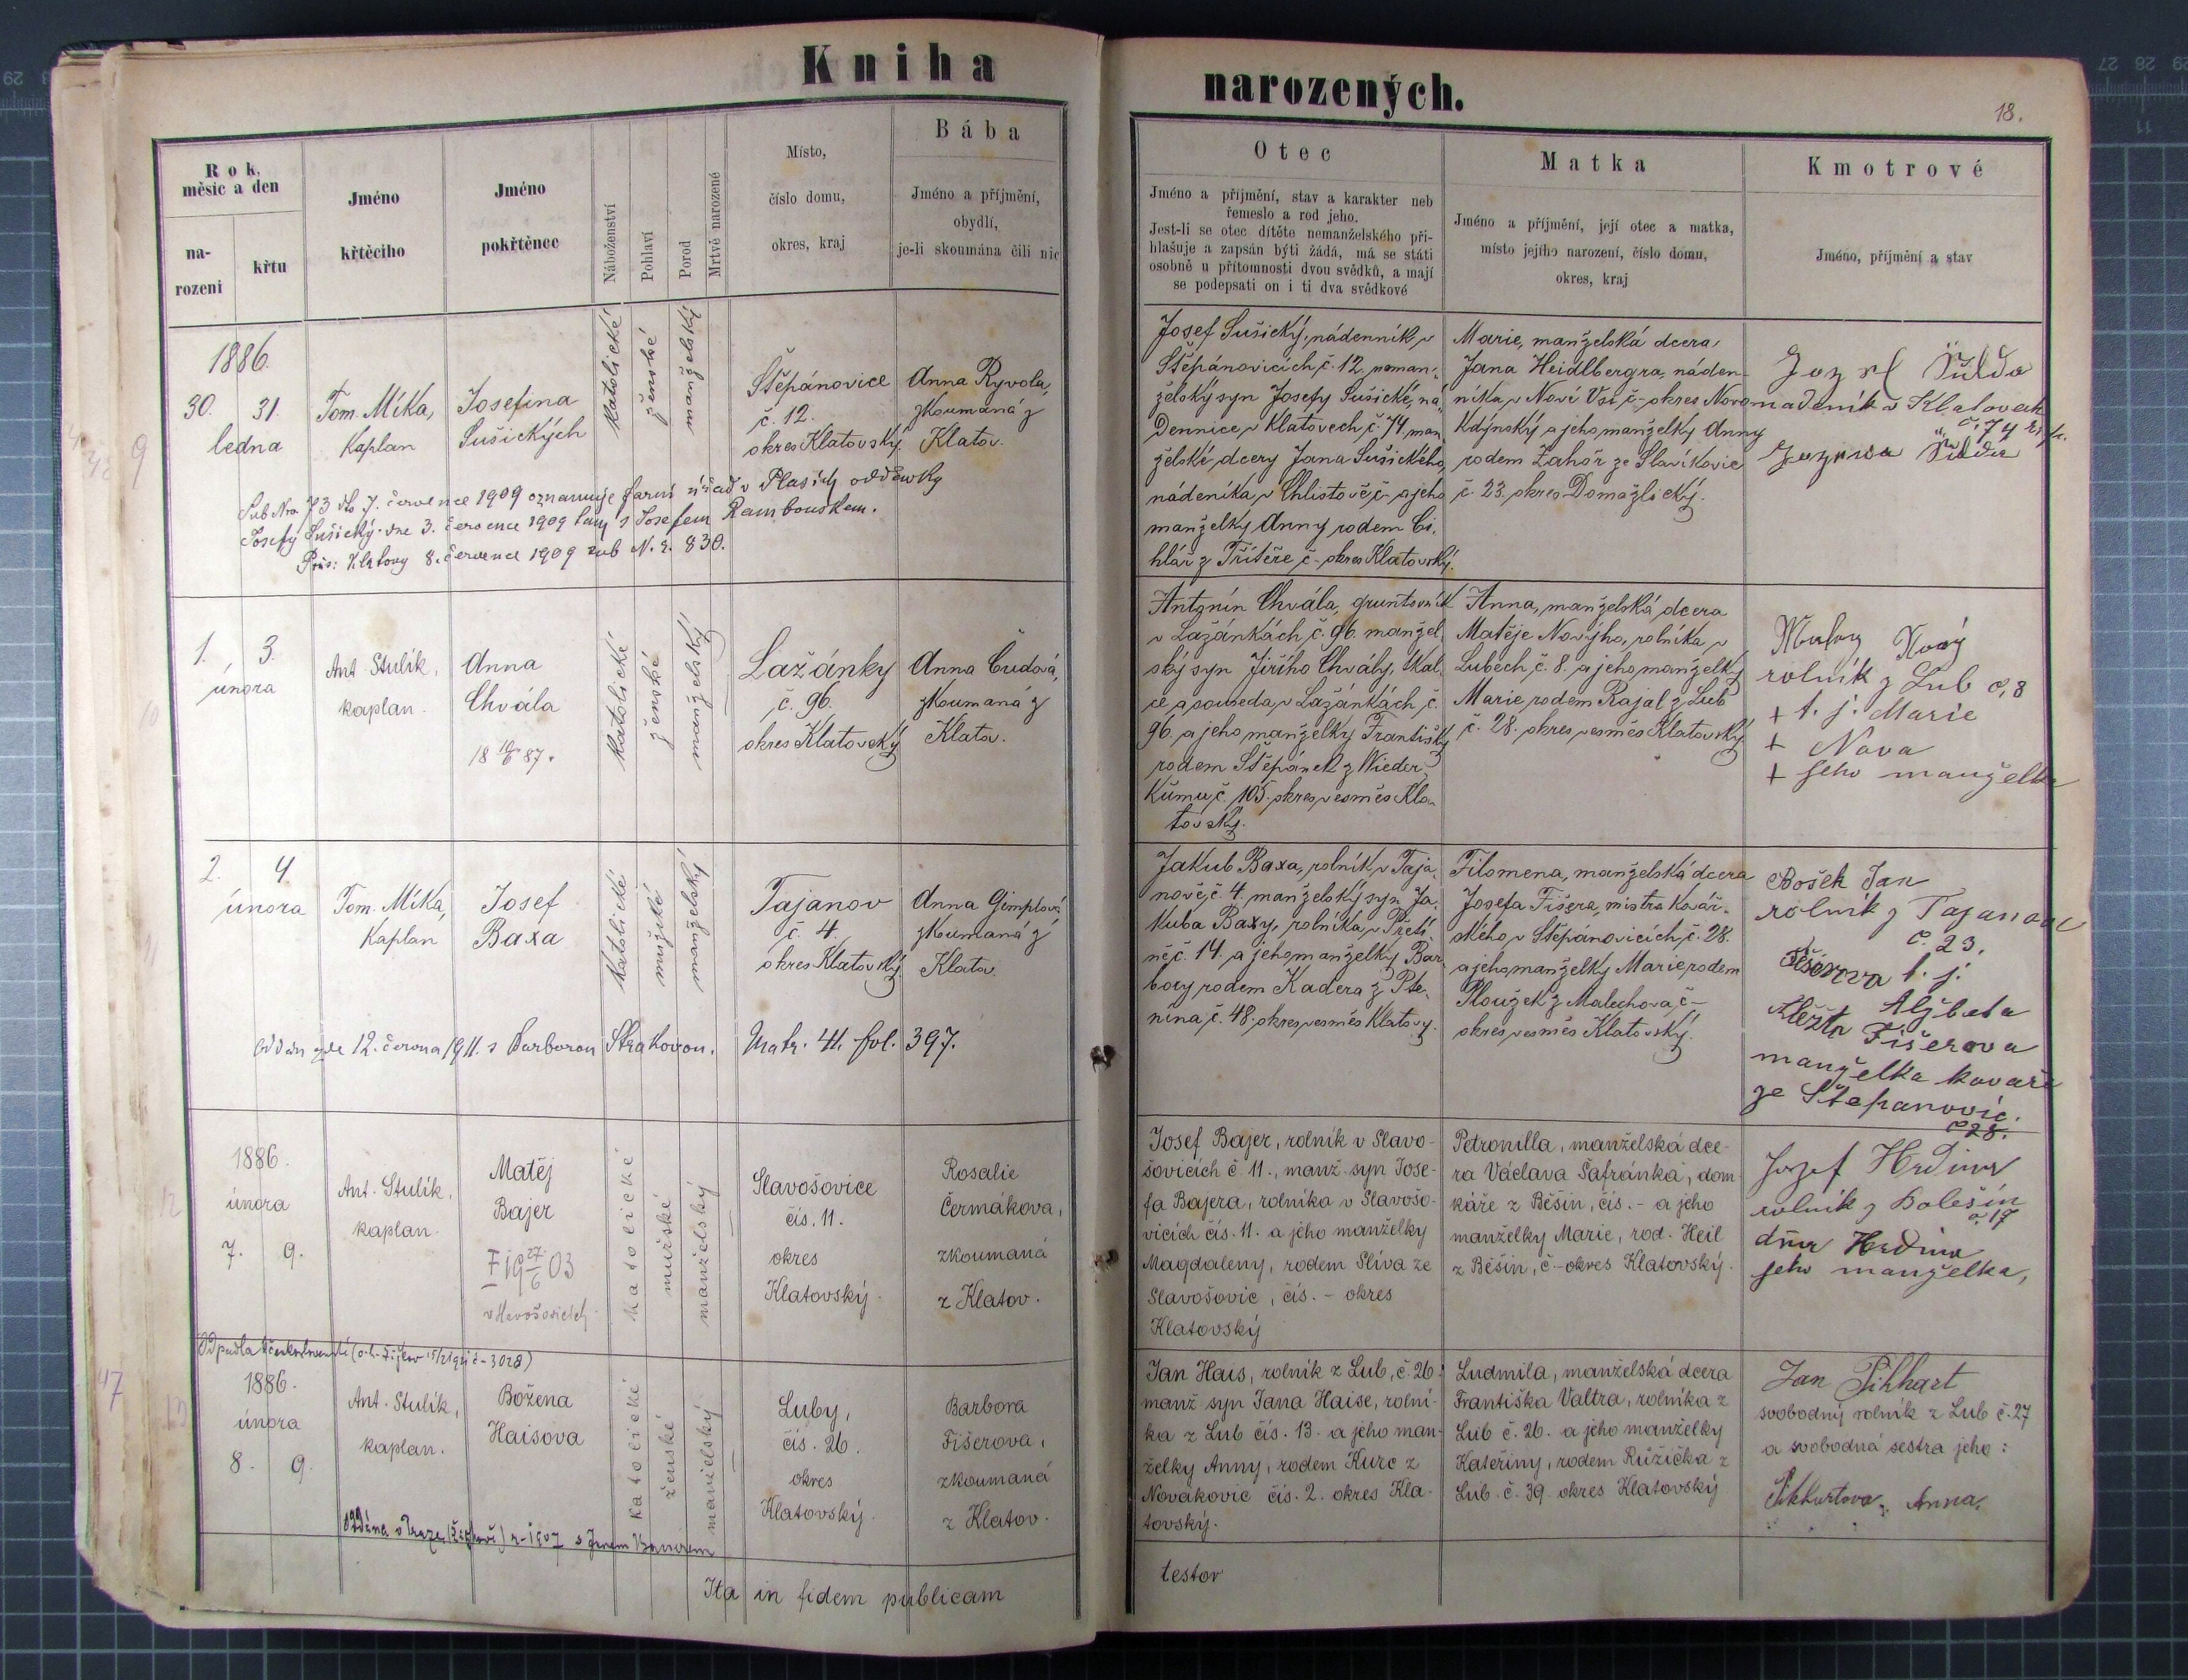 Kniha
narozených.
18.
Rok,
měsíc a den
na-
rozeni
křtu
Jméno
křtěcího
Jméno
pokřtěnce
Náboženství
Pohlaví
Porod
Mrtvě narozené
Místo,
číslo domu,
okres, kraj
Bába
Jméno a příjmění,
obydlí,
je-li skoumána čili nic
Otec
Jméno a přijmění, stav a karakter neb
řemeslo a rod jeho.
Jest-li se otec dítěte nemanželského při-
hlašuje a zapsán býti žádá, má se státi
osobně u přítomnosti dvou svědků, a mají
se podepsati on i ti dva svědkové
Matka
Jméno a příjmění, její otec a matka,
místo jejího narození, číslo domu,
okres, kraj
Kmotrové
Jméno, přijmění a stav
9
1886.
30. 31.
ledna
Tom. Míka,
Kaplan
Josefina
Sušických
katolické
ženské
manželský
Štěpánovice
č. 12.
okres Klatovský.
Anna Ryvola,
zkoumaná z
Klatov.
Sub Nro 73 dto 7. července 1909 oznamuje farní úřad v Plasích oddavky
Josefy Sušický dne 3. července 1909 tam s Josefem Rambouskem.
Klatovy 8. července 1909 sub N. E. 830.
Josef Sušický, nádenník v
Štěpánovicích č. 12. neman-
želský syn Josefy Sušické, ná-
dennice v Klatovech č. 74 man-
želské dcery Jana Sušického,
nádeníka v Chlistově č - a jeho
manželky Anny rodem Ci-
hlář z Třítěře č - okres Klatovský.
Marie, manželská dcera
Jana Heidlbergra, náden-
níka v Nové Vsi č - okres Novo
Kdýnský a jeho manželky Anny
rodem Zahoř ze Slavíkovic
č. 23. okres Domažlický.
Jozef
nadeník v Klatovech
č. 74
10
1. 3.
února
Ant. Stulík,
kaplan.
Anna
Chvála
katolické
ženské
manželský
Lažánky
č. 96.
okres Klatovský
Anna Čudová,
zkoumaná z
Klatov.
Antonín Chvála, gruntovník
v Lažánkách č. 96. manžel-
ský syn Jiřího Chvály, tkal-
ce a souseda v Lažánkách č.
96. a jeho manželky Františky
rodem Štěpánek z Wieder-
kumu č. 105. okres vesměs Kla-
tovský.
Anna, manželská dcera
Matěje Nového, rolníka v
Lubech č. 8. a jeho manželky
Marie rodem Rajal z Lub
č. 28. okres vesměs Klatovský.
Nový
rolník z Lub č. 8
+ t. j. Marie
+ Nova
+ jeho manželka
2. 4.
února
Tom. Míka,
Kaplan
Josef
Baxa
katolické
mužské
manželský
Tajanov
č. 4.
okres Klatovský
Anna Gimplová
zkoumaná z
Klatov.
Oddán zde 12. června 1911. s Barborou Strakovou. Matr. 41. fol. 397.
Jakub Baxa, rolník v Taja-
nově č. 4. manželský syn Ja-
kuba Baxy, rolníka v Přetí-
ně č. 14. a jeho manželky Bar-
bory rodem Kadera z Pte-
nína č. 48. okres vesměs Klatovy.
Filomena, manželská dcera
Josefa Fišera, mistra kovář-
ského v Štěpánovicích č. 28.
a jeho manželky Marie rodem
Ploužek z Malechova, č -
okres vesměs Klatovský.
Bošek Jan
rolník z Tajanova
č. 23.
t. j.
Alžbeta
Fišerova
manželka kovaře
ze Štepanovic.
č 28.
12
1886.
února
7. 9.
Ant. Stulík,
kaplan.
Matěj
Bajer
† 19 27/6 03
v Slavošovicích
katolické
mužské
manželský
Slavošovice
čís. 11.
okres
Klatovský.
Rosalie
Čermákova,
zkoumaná
z Klatov.
Josef Bajer, rolník v Slavo-
šovicích č 11., manž. syn Jose-
fa Bajera, rolníka v Slavošo-
vicích čís. 11. a jeho manželky
Magdaleny, rodem Slíva ze
Slavošovic, čís. - okres
Klatovský
Petronilla, manželská dce-
ra Václava Šafránka, dom-
káře z Běšin, čís. - a jeho
manželky Marie, rod. Heil
z Běšin, č - okres Klatovský.
Jozef Hrdina
rolník z Bolešin
č 17
Hrdina
jeho manželka,
47
1886.
února
8. 9.
Ant. Stulík,
kaplan.
Božena
Haisova
katolické
ženské
manželský
Luby,
čís. 26.
okres
Klatovský.
Barbora
Fišerova,
zkoumaná
z Klatov.
Oddána v Praze (Žižkově) r. 1907 s Janem
Jan Hais, rolník z Lub, č. 26.
manž syn Jana Haise, rolní-
ka z Lub čís. 13. a jeho man-
želky Anny, rodem Kurc z
Novakovic čís. 2. okres Kla-
tovský.
Ludmila, manželská dcera
Františka Valtra, rolníka z
Lub č. 26. a jeho manželky
Kateřiny, rodem Růžička z
Lub. č. 39 okres Klatovský
Jan Pihhart
svobodný rolník z Lub č. 27
a svobodná sestra jeho:
Anna.
Ita in fidem publicam
testor